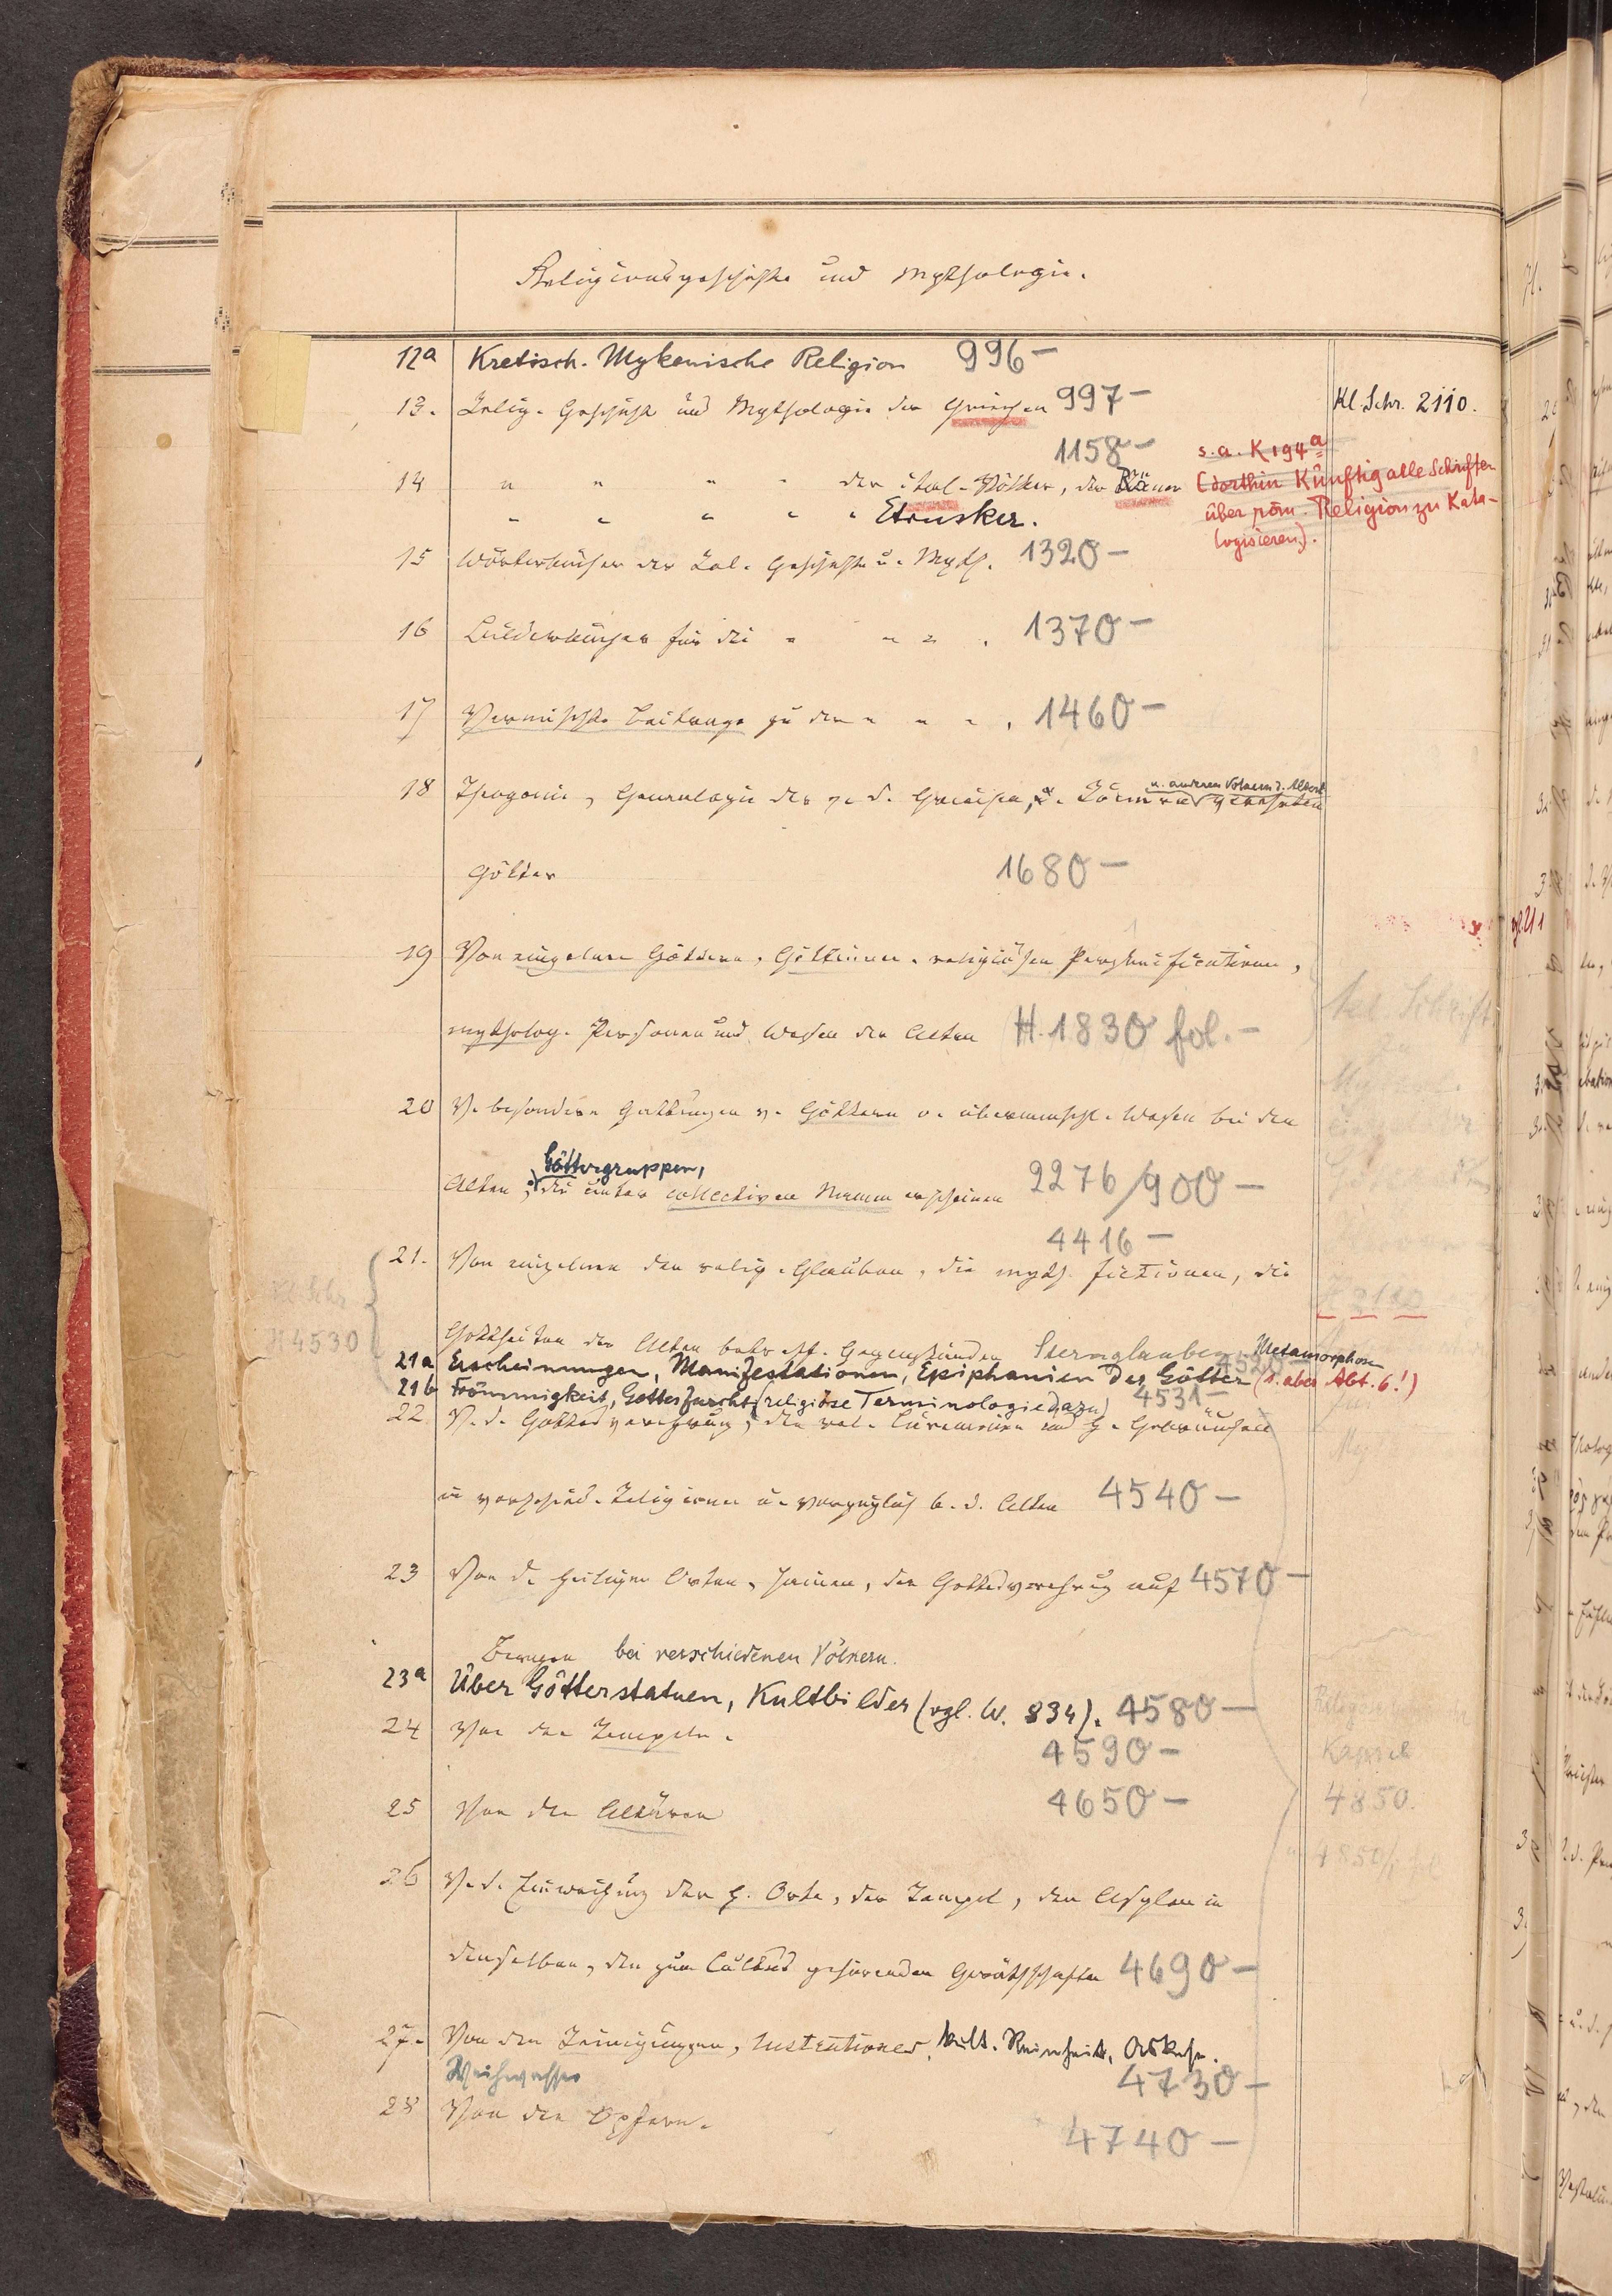 Religionsgeschichte und Mythologie.
12a Kretisch-Mykenische Religion 996 –
13. Relig. Geschichte und Mythologie der Griechen 997 – Kl. Schr. 2110.
1158 – s. a. K 194a
14 " " " " der ital. Völker, der Römer (dorthin künftig alle Schriften
" " " " " Etrusker. über röm. Religion zu Kata-
logisieren).
15 Wörterbücher der Rel. Geschichte u. Myth. 1320 –
16 Bilderbücher für die " " " . 1370 –
17 Vermischte Beiträge zu der " " " . 1460 –
u. anderen Völkern d. Altert.
18 Theogonie, Genealogie der v. d. Griechen, u. Römern verehrten
Götter 1680 –
19 Von einzelnen Göttern, Göttinnen, religiösen Personificationen,
mytholog. Personen und Wesen der Alten H. 1830 fol. –
kl. Schrift
20 V. besondern Gattungen v. Göttern u. übermenschl. Wesen bei den
Göttergruppen,
Alten, die unter collectiven Namen erscheinen 2276/900 –
4416 –
21. Von einzelnen den relig. Glauben, die myth. Fictionen, die
Kl. Schr.
H 4530
Gottheiten der Alten betreff. Gegenständen Sternglauben Metamorphosen
4520 –
21a Erscheinungen, Manifestationen, Epiphanien der Götter (s. aber Abt. 6!)
21b Frömmigkeit, Gottesfurcht (religiöse Terminologie dazu) 4531 –
22 V. d. Gottesverehrung, den rel. Ceremonien und h. Gebräuchen
in verschied. Religionen u. vorzüglich b. d. Alten 4540 –
23 Von d. heiligen Orten, Hainen, der Gottesverehrung auf 4570 –
Bergen bei verschiedenen Völkern.
23a Über Götterstatuen, Kultbilder (vgl. W. 834). 4580 –
24 Von den Tempeln. 4590 –
Kapsel
25 Von den Altären 4650 –
4850.
26 V. d. Einweihung der h. Orte, der Tempel, den Asylen in
denselben, den zum Cultus gehörenden Geräthschaften 4690 –
27. Von den Reinigungen, Lustrationes, kult. Reinheit, Askese.
Weihwasser 4730 –
28 Von den Opfern. 4740 –